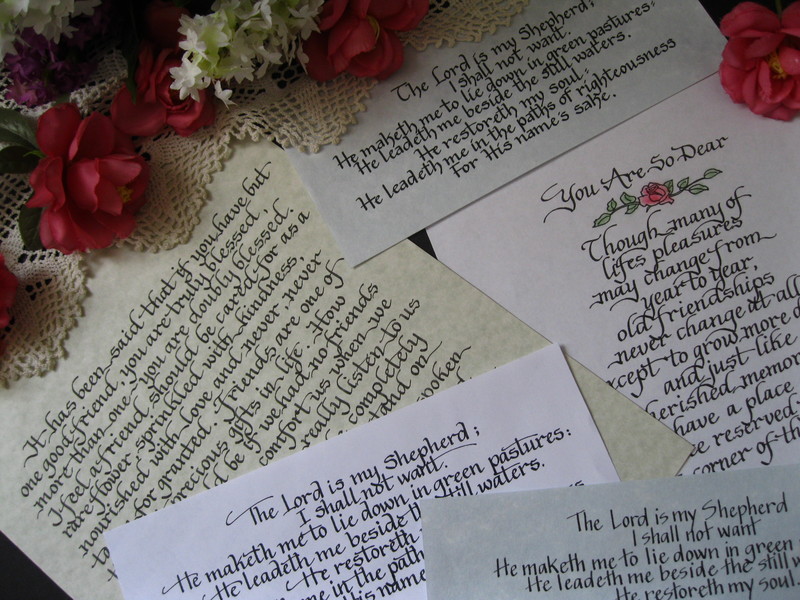 The Lord is my Shepherd;
I shall not want.
He maketh me to lie down in green pastures:
He leadeth me beside the still waters.
He restoreth my soul:
He leadeth me in the paths of righteousness
For His name's sake.
You Are So Dear
Though many of
life's pleasures
may change from
year to year,
old friendships
never change at all
xcept to grow more d
and just like
herished memor
have a place
ee reserved
corner of th
It has been said that if you have but
one good friend, you are truly blessed,
more than one, you are doubly blessed.
I feel a friend should be cared for as a
rare flower sprinkled with kindness,
nourished with love and never never
to for granted. Friends are one of
precious gifts in life. How
ld be if we had no friends
comfort us when we
really listen to us
completely
stand on
spoken
The Lord is my Shepherd;
I shall not want.
He maketh me to lie down in green pastures:
He leadeth me beside the still waters.
He restoreth
me in the path
His name
The Lord is my Shepherd
I shall not want
He maketh me to lie down in green
He leadeth me beside the still w
He restoreth my soul.